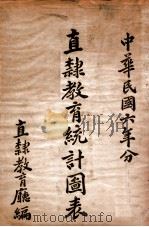 中華民國六年分
直隸教育統計圖表
直隸教育廳編
www.docriver.com